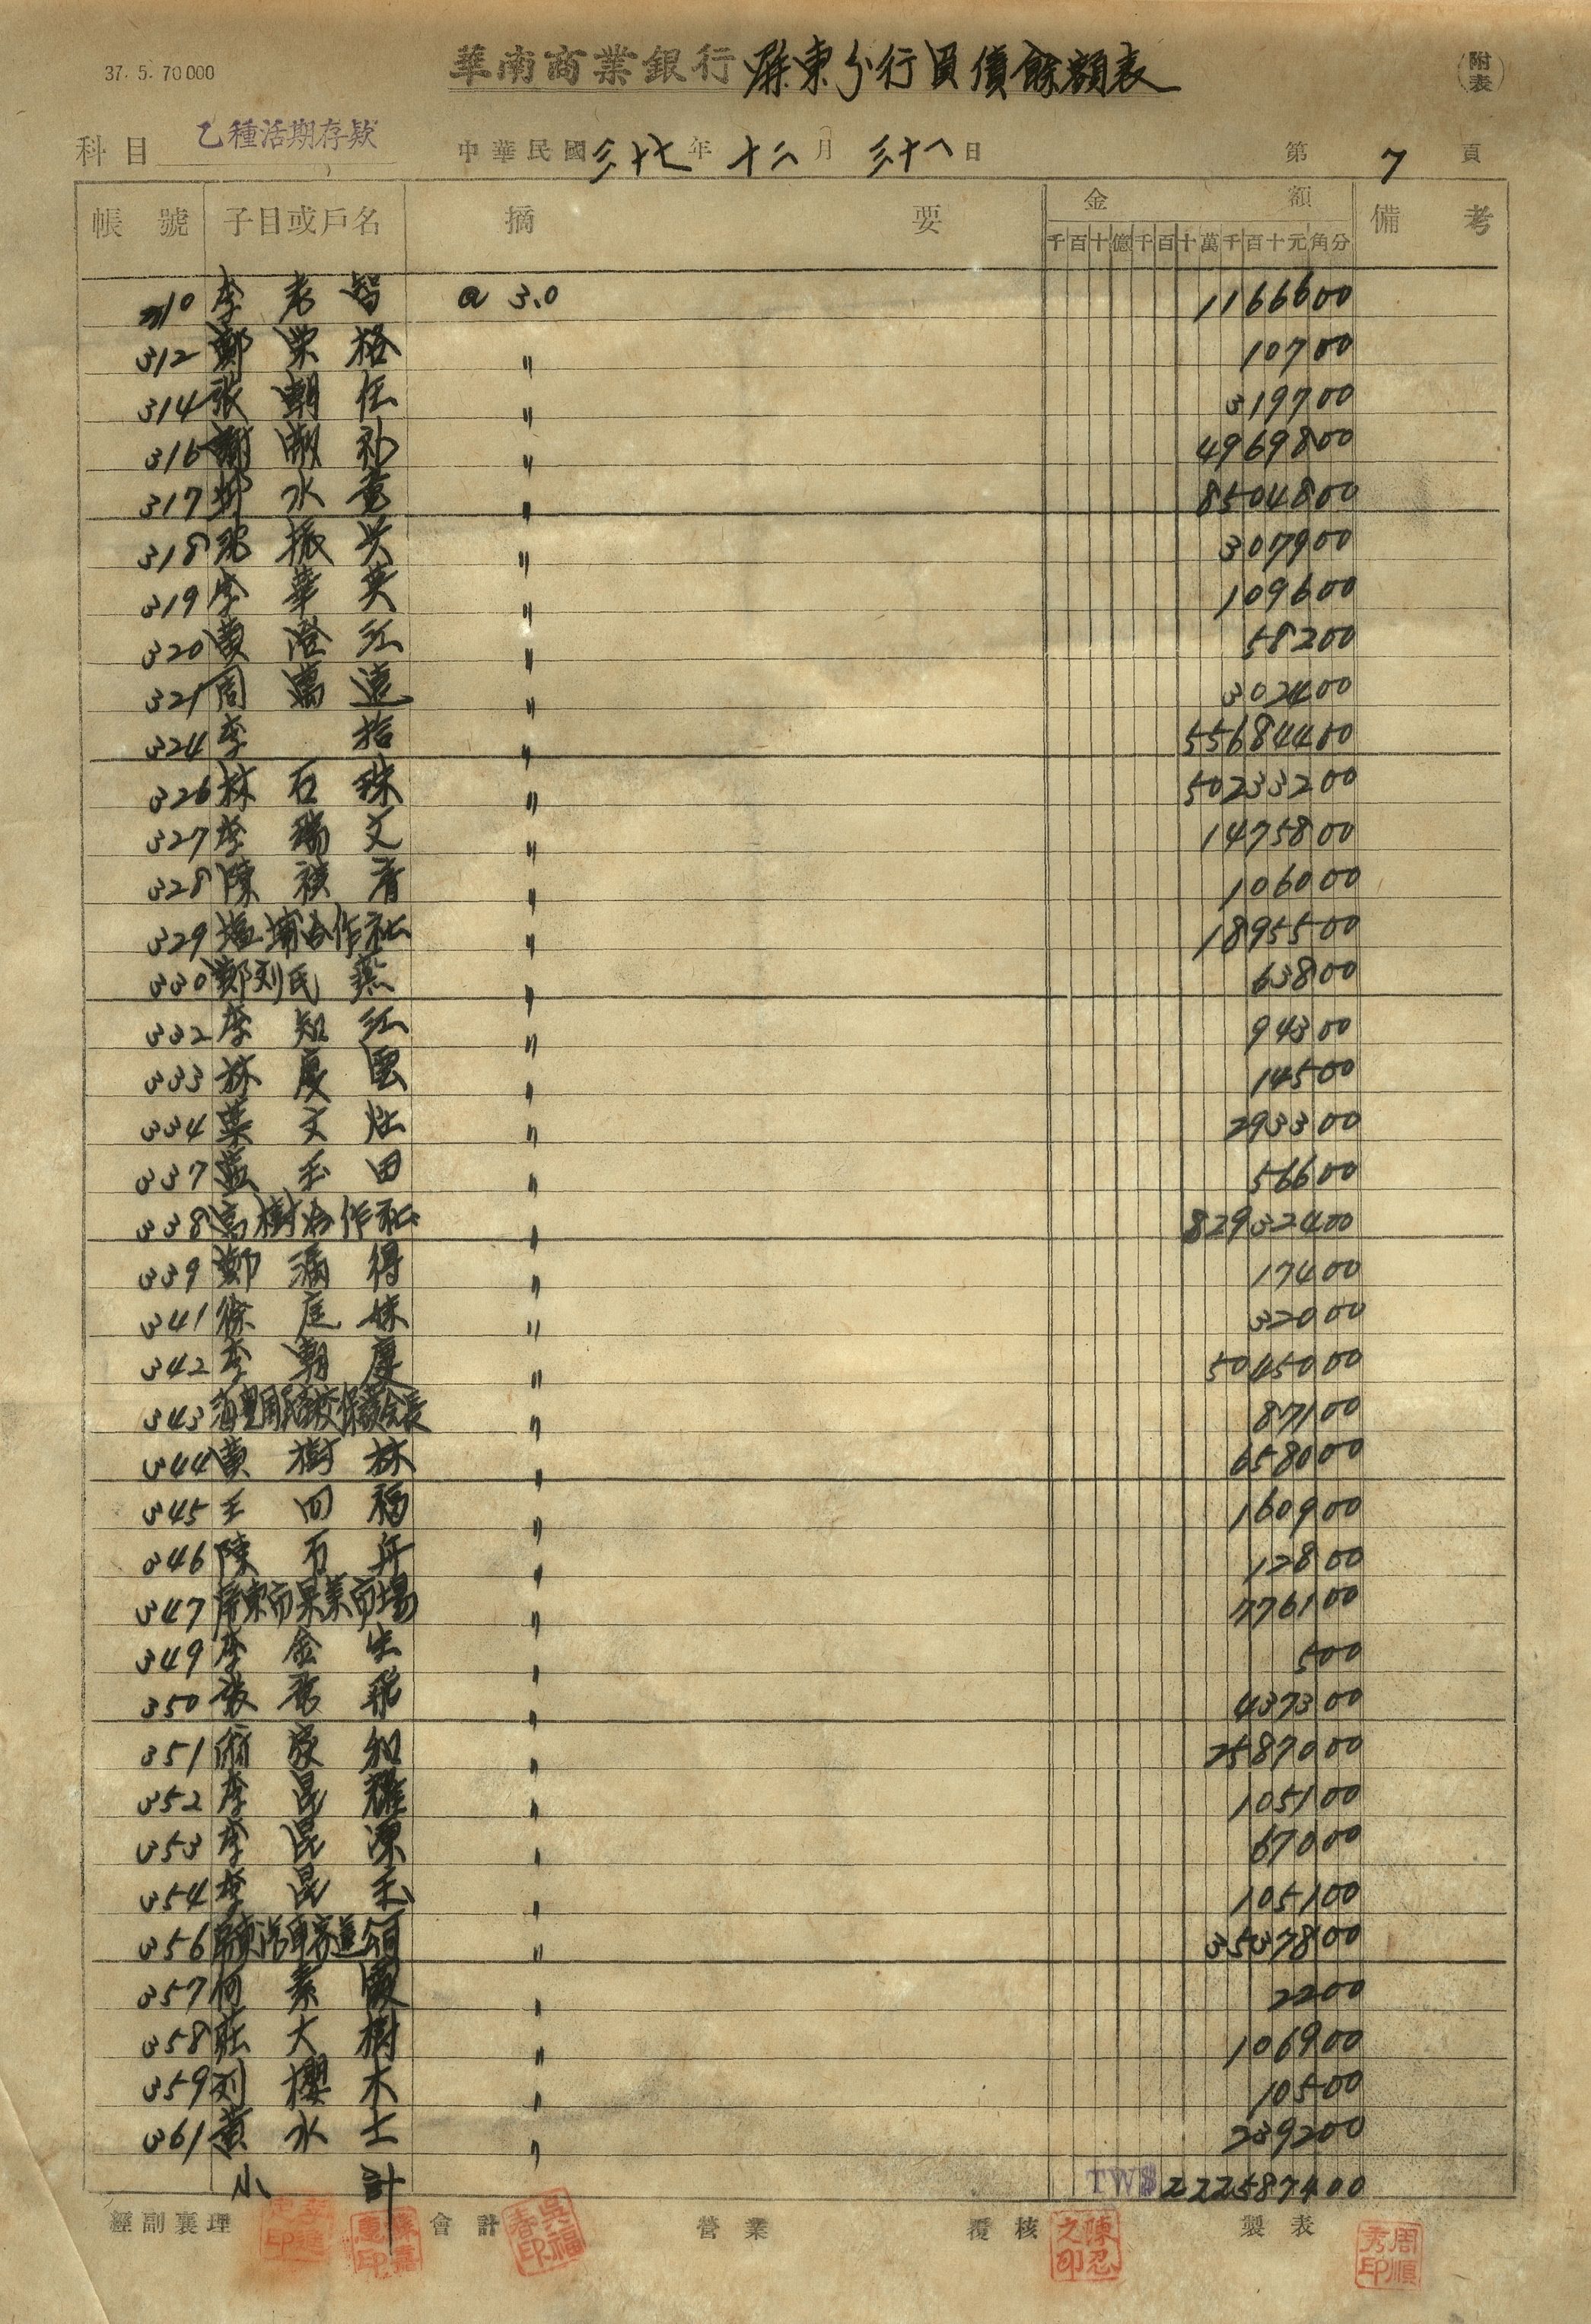 37. 5. 70000
華南商業銀行 屏東分行負債餘額表
(附表)
科目 乙種活期存款 中華民國三十七年十二月三十一日 第7頁
帳號 子目或戶名 摘要 金額 備考
千百十億千百十萬千百十元角分
310 李 智 @ 3.0 1166600
312 鄭 栄 格 〃 10700
314 張 朝 任 〃 319700
316 謝 朝 礼 〃 4969800
317 水 〃 8504800
318 振 〃 307900
319 李 華 英 〃 109600
320 黄 澄 江 〃 58200
321 周 萬 遠 〃 302400
324 李 拾 〃 55684400
326 林 石 珠 〃 50233200
327 李 瑞 文 〃 1475800
328 陳 〃 106000
329 塩埔合作社 〃 1895500
330 鄭刘氏 燕 〃 63800
332 李 知 紅 〃 94300
333 林 慶 雲 〃 14500
334 葉 文 灶 〃 293300
337 藍 玉 田 〃 56600
338 高樹合作社 〃 82932400
339 鄭 滿 得 〃 17400
341 徐 庭 妹 〃 32000
342 李 朝 慶 〃 5045000
343 海豊国民学校保護会長 〃 87100
344 黄 樹 林 〃 658000
345 王 四 福 〃 160900
346 陳 石 舟 〃 12800
347 屏東市果菜市場 〃 776100
349 李 金 生 〃 500
350 張 飛 〃 437300
351 家 和 〃 2587000
352 李 昆 耀 〃 105100
353 李 昆 源 〃 67000
354 李 昆 玉 〃 105100
356 〃 3537800
357 何 素 霞 〃 2200
358 莊 大 樹 〃 106900
359 刘 櫻 木 〃 10500
361 黄 水 士 〃 239200
小計 TW$ 222587400
經副襄理 會計 吳福春印 營業 覆核 陳忍之印 製表 周順秀印